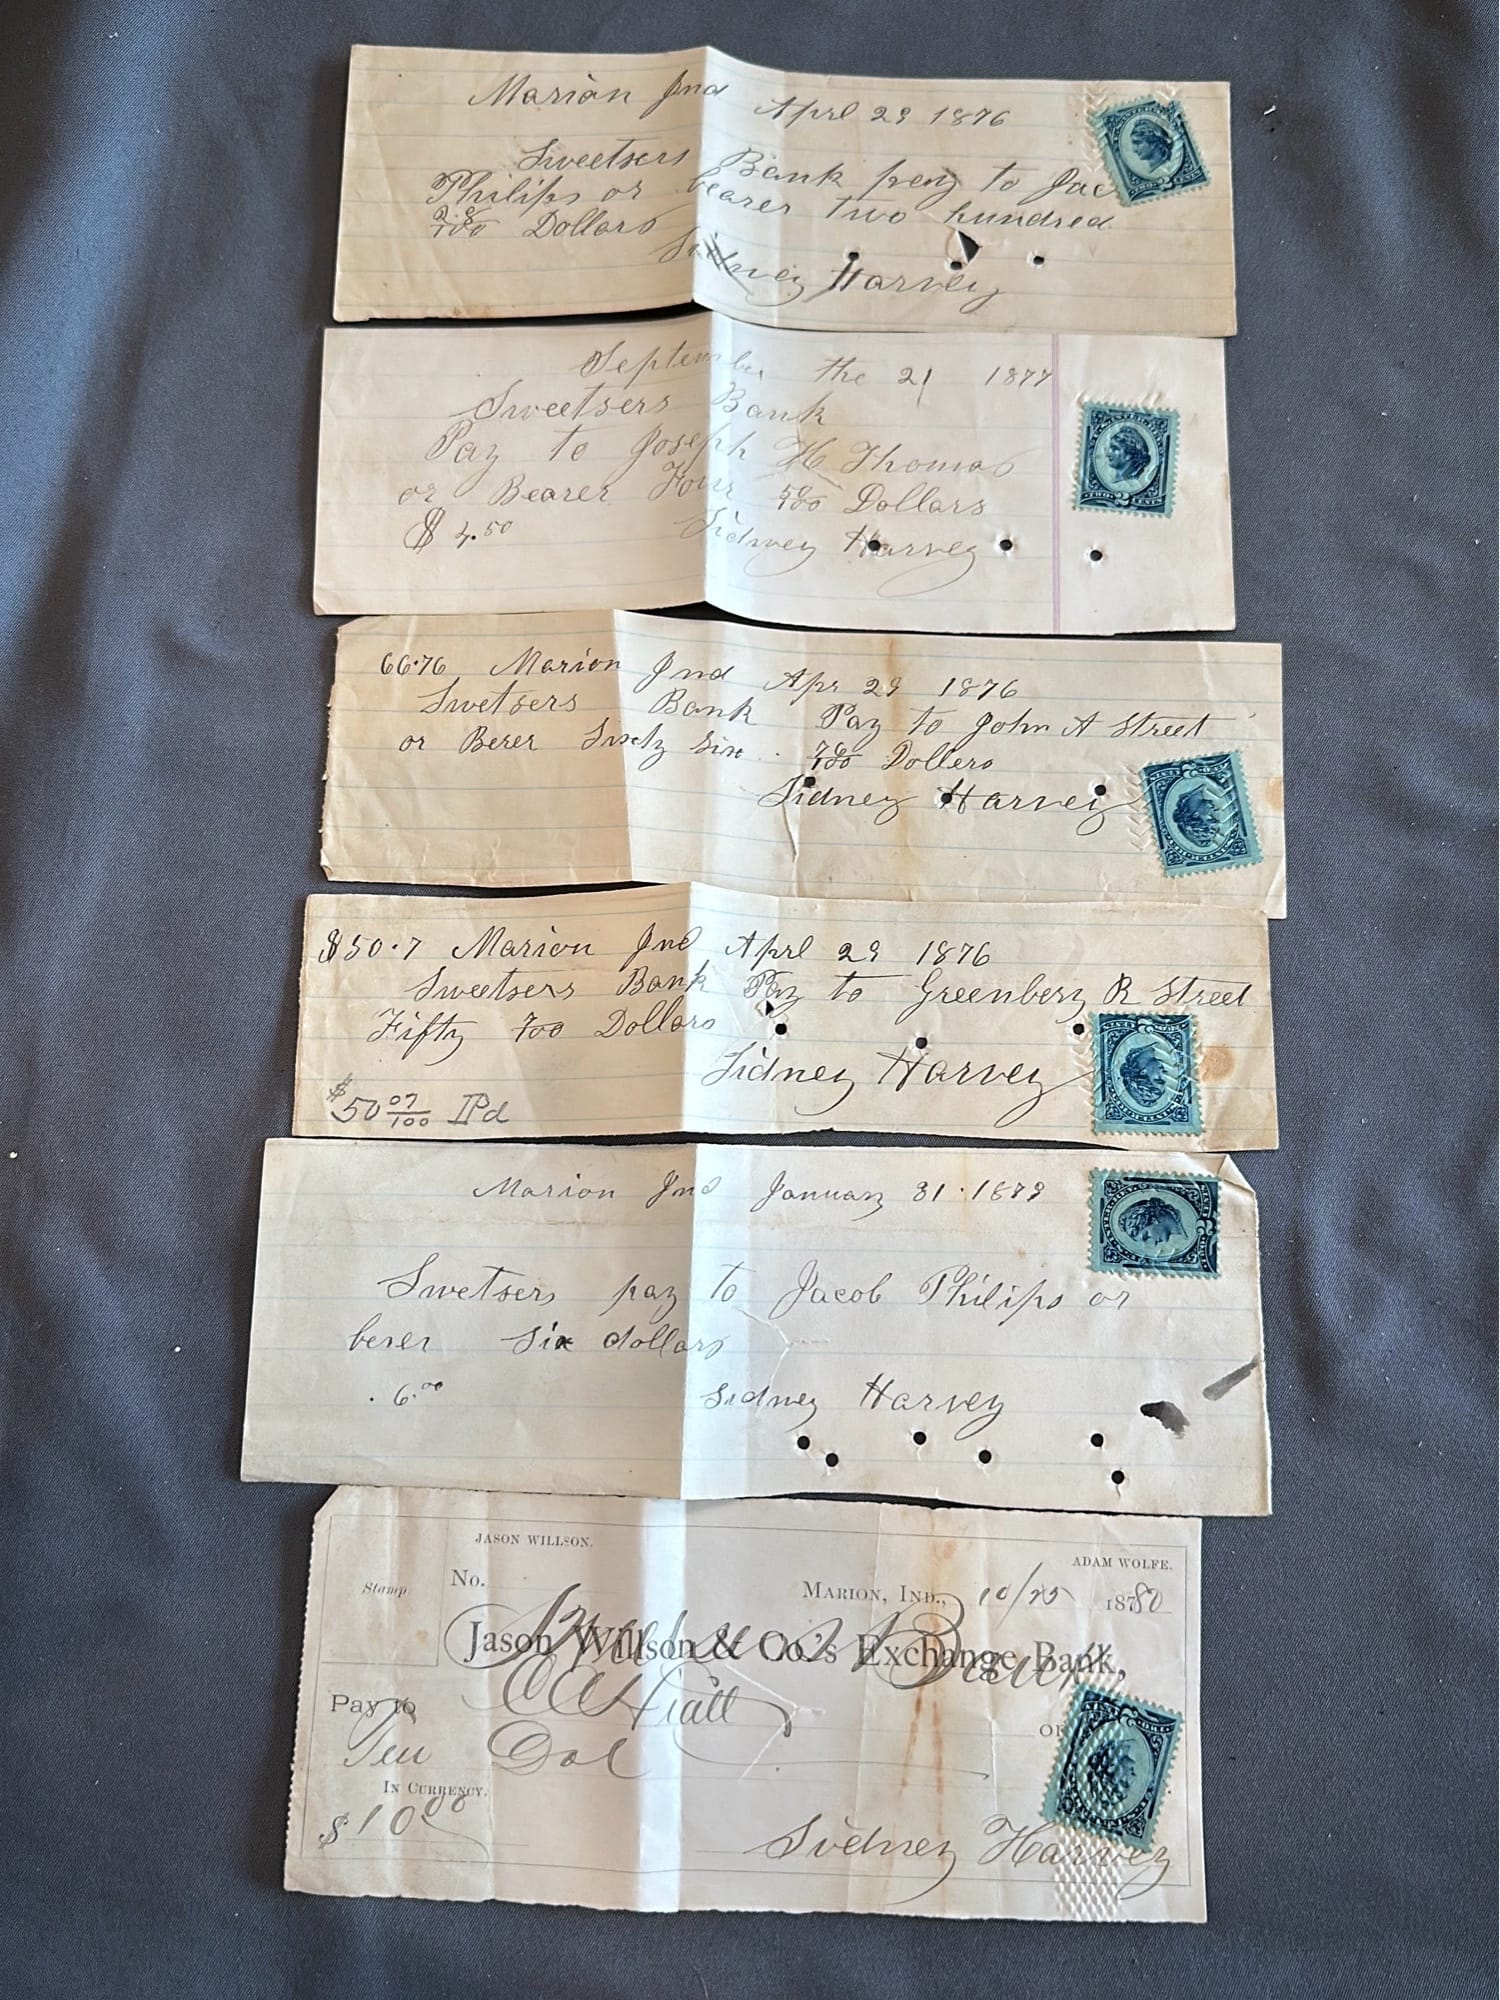 Marion Ind April 29 1876
Sweetsers Bank pay to Jac
Philips or bearer two hundred
28/100 Dollars
Sidney Harvey
September the 21 1877
Sweetsers Bank
Pay to Joseph H Thomas
or Bearer Four 50/100 Dollars
$ 4.50 Sidney Harvey
66.76 Marion Ind Apr 29 1876
Swetsers Bank Pay to John A Street
or Berer Sixty Six 76/100 Dollers
Sidney Harvey
$50.7 Marion Ind Aprl 29 1876
Sweetsers Bank Pay to Greenbery R Street
Fifty 7/100 Dollars
Sidney Harvey
$50 07/100 Pd
Marion Ind January 31.1879
Swetsers pay to Jacob Philips or
berer Six dollars
. 6.00 Sidney Harvey
JASON WILLSON. ADAM WOLFE.
Stamp No. MARION, IND., 10/25 18780
Jason Willson & Co.'s Exchange Bank,
Sweetsers Bank
Pay to C C Hiatt OR
Ten Dol
IN CURRENCY.
$10 00
Sidney Harvey